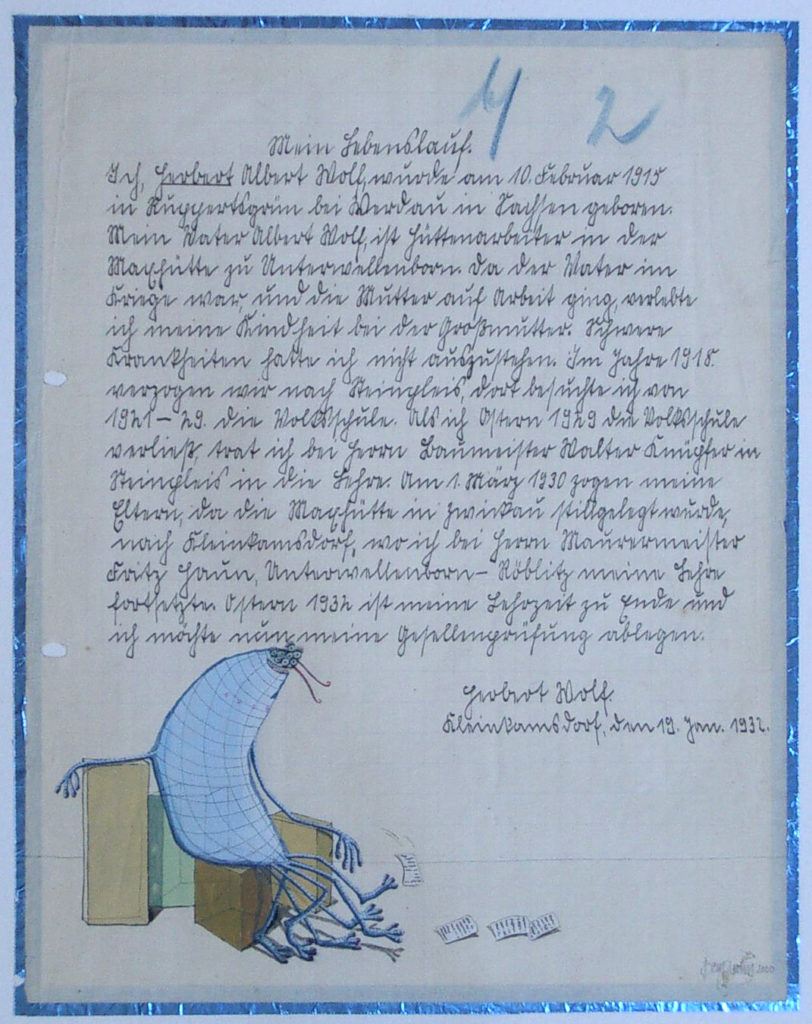 4 2
Mein Lebenslauf.
Ich, Herbert Albert Wolf, wurde am 10. Februar 1915
in Ruppertsgrün bei Werdau in Sachsen geboren.
Mein Vater Albert Wolf, ist Hüttenarbeiter in der
Maxhütte zu Unterwellenborn. Da der Vater im
Kriege war und die Mutter auf Arbeit ging, verlebte
ich meine Kindheit bei der Großmutter. Schwere
Krankheiten hatte ich nicht auszustehen. Im Jahre 1918
verzogen wir nach Steinpleis, dort besuchte ich von
1921 – 29. die Volksschule. Als ich Ostern 1929 die Volksschule
verließ, trat ich bei Herrn Baumeister Walter Knüpfer in
Steinpleis in die Lehre. Am 1. März 1930 zogen meine
Eltern, da die Maxhütte in Zwickau stillgelegt wurde,
nach Kleinkamsdorf, wo ich bei Herrn Maurermeister
Fritz Haun, Unterwellenborn – Röblitz meine Lehre
fortsetzte. Ostern 1932 ist meine Lehrzeit zu Ende und
ich möchte nun meine Gesellenprüfung ablegen.
Herbert Wolf.
Kleinkamsdorf, den 19. Jan. 1932.